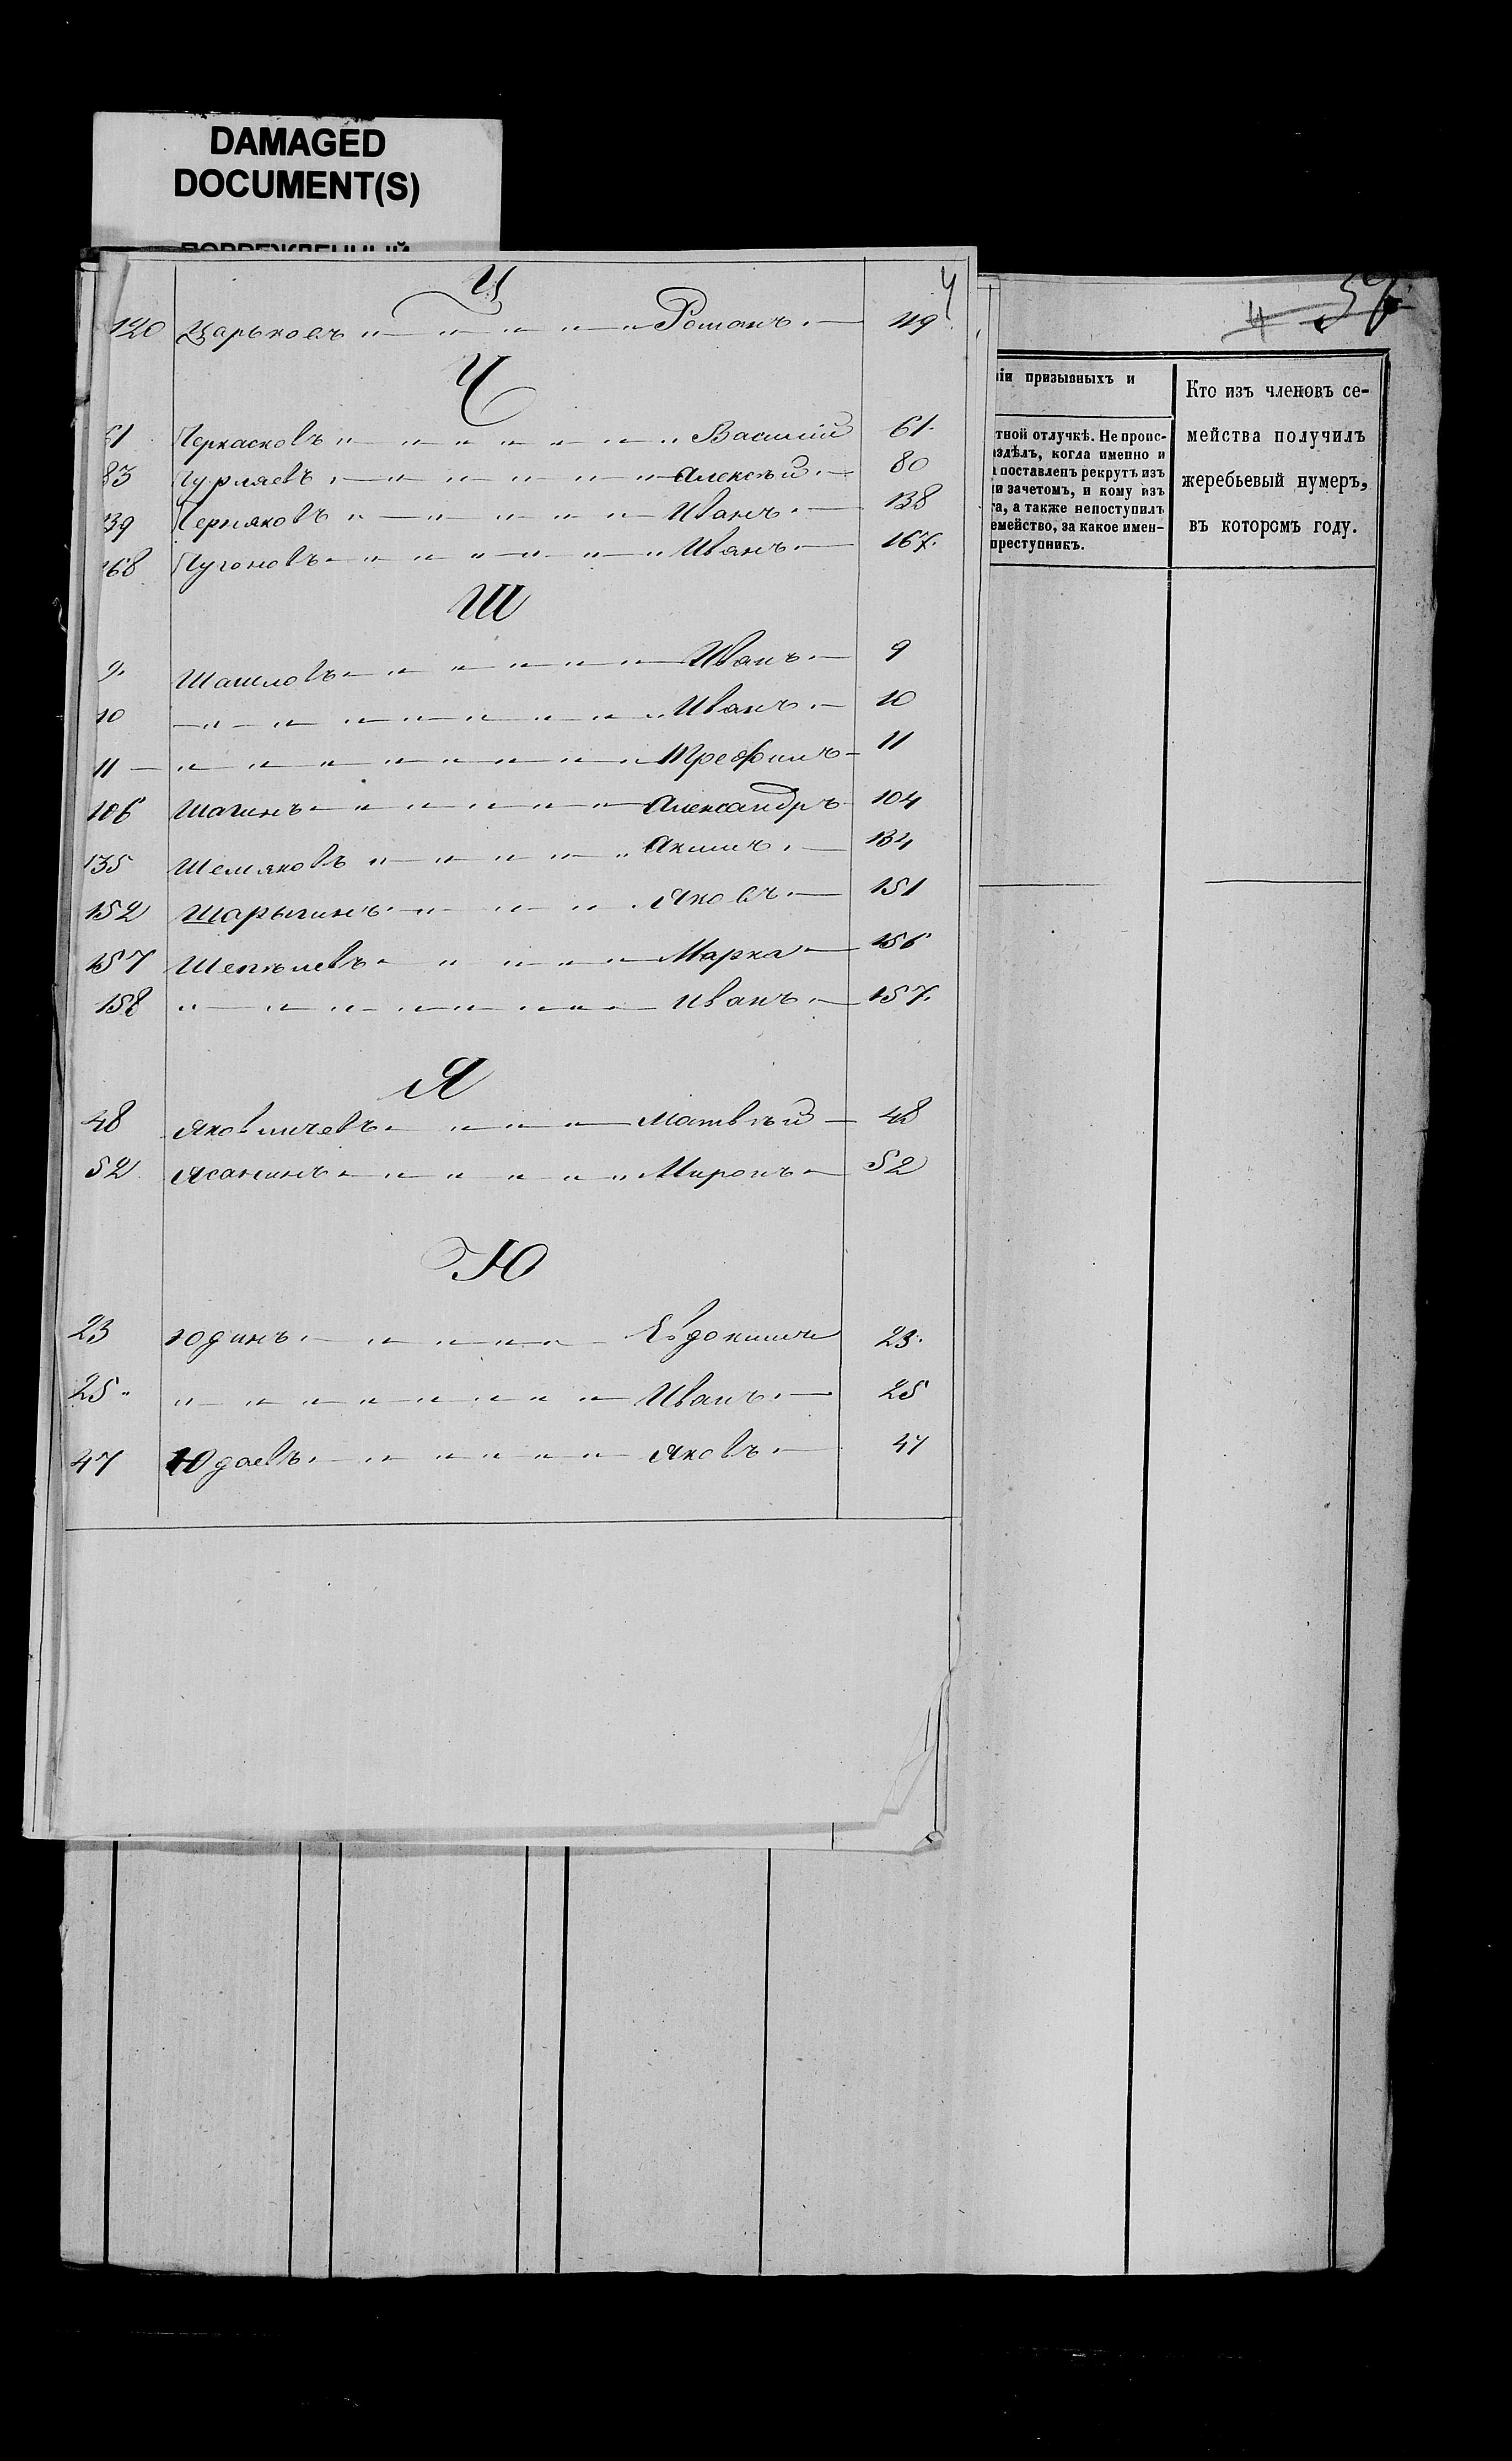 DAMAGED
DOCUMENT(S)
4
57
Ц
4
120 Царьковъ " — " — " — " Романъ. — 119.
Ч
61 Черкасковъ " — " — " — " Василій 61.
83 Чурляевъ. — " — " — " Алексѣй. — 80
139 Черняковъ " — " — " — " Иванъ. — 138
168 Чугоновъ — " — " — " Иванъ. — 167.
Ш
9. Шашловъ — " — " — " Иванъ. — 9
10 — " — " — " — " Иванъ. — 10
11 — " — " — " — " Трефилъ — 11
106 Шагинъ — " — " — " Александръ 104
135 Шемяковъ " — " — " Акимъ. — 134
152 Шарыгинъ — " — " Яковъ. — 151
157 Шепѣлевъ — " — " — Марка — 156
158 " — " — " — " — Иванъ. — 157.
Я
48 Яковличевъ — " — " — Матвѣй — 48
52 Ясанинъ — " — " — " Миронъ — 52
Ю
23 Юдинъ. — " — " — Евдокимъ 23.
25. " — " — " — " — Иванъ. — 25
47 Юдаевъ. — " — " — Яковъ. — 47
ніи призывныхъ и
тной отлучкѣ. Не проис-
здѣлъ, когда именно и
поставленъ рекрутъ изъ
и зачетомъ, и кому изъ
га, а также непоступилъ
емейство, за какое имен-
преступникъ.
Кто изъ членовъ се-
мейства получилъ
жеребьевый нумеръ,
въ которомъ году.